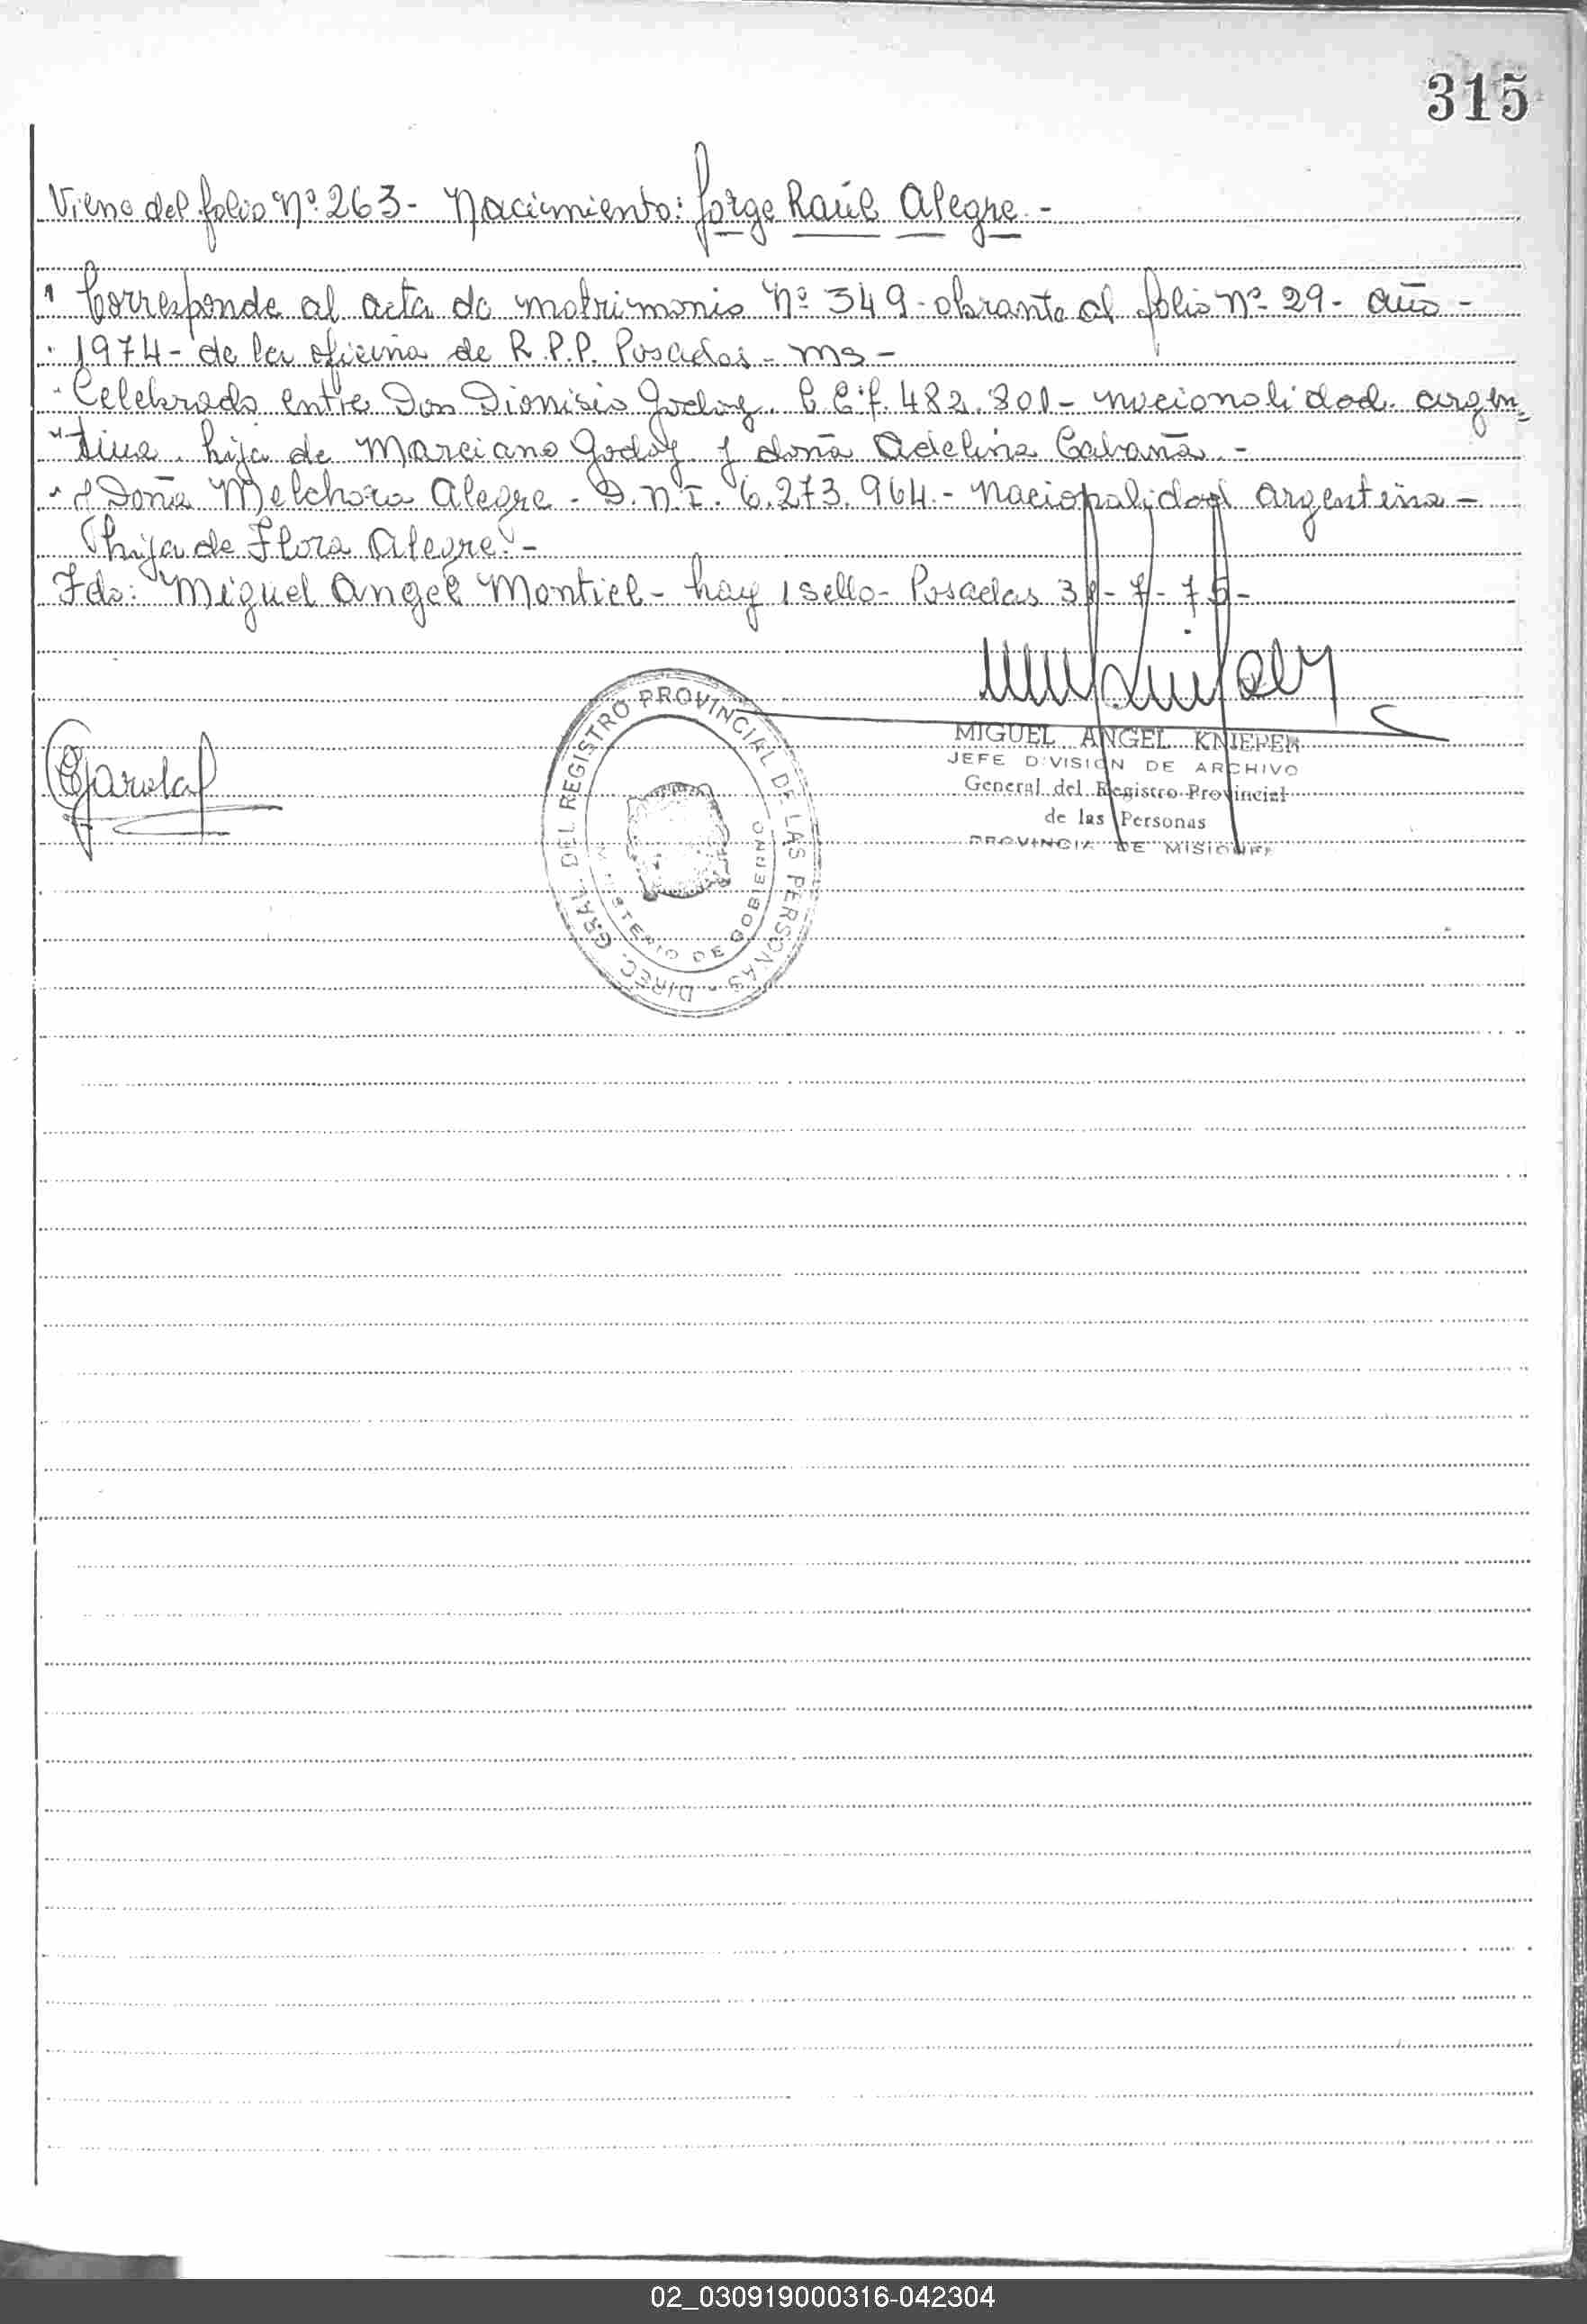 315
Viene del folio Nº 263- Nacimiento: Jorge Raúl Alegre.-
" Corresponde al acta de matrimonio Nº 349- obrante al folio Nº 29- año -
" 1974- de la oficina de R.P.P. Posadas - Ms -
" Celebrado entre Don Dionisio Godoy. 482.801- nacionalidad argen-
" tina. hijo de Marciano Godoy y doña Adelina Cabaña.-
" y Doña Melchora Alegre - D.N.I. 6.273.964.- Nacionalidad argentina -
hija de Flora Alegre."-
Fdo: Miguel Angel Montiel- hay 1 sello- Posadas
MIGUEL ANGEL KNIEPER
JEFE DIVISION DE ARCHIVO
General del Registro Provincial
de las Personas
PROVINCIA DE MISIONES
DIREC. GRAL. DEL REGISTRO PROVINCIAL DE LAS PERSONAS -
MINISTERIO DE GOBIERNO
02_030919000316-042304